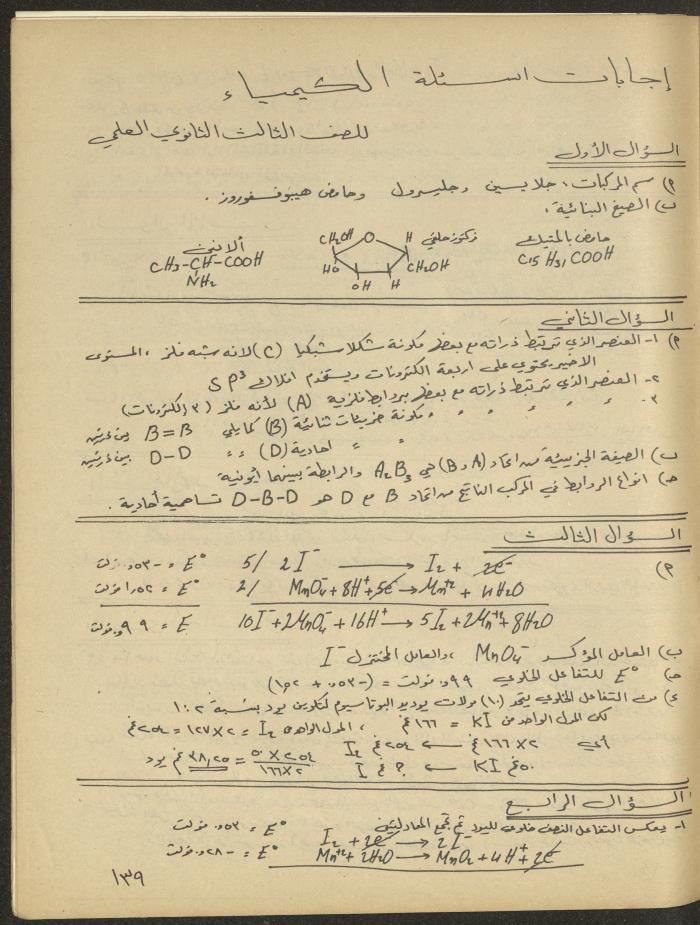 إجابات اسئلة الكيمياء
للصف الثالث الثانوي العلمي
السؤال الأول
أ) سم المركبات، جلايسين وجليسرول وحامض هيبوفسفوروز.
ب) الصيغ البنائية.
حامض بالمتيك فركتوز حلقي ألانين
C15 H31 COOH
CH2OH O H HO OH H CH2OH
CH3-CH-COOH
NH2
السؤال الثاني
أ) ١- العنصر الذي ترتبط ذراته مع بعض مكونة شكلا شبكيا (C) لانه شبه فلز، المستوى
الاخير يحتوي على اربعة الكترونات ويستخدم افلاك SP³
٢- العنصر الذي ترتبط ذراته مع بعض بروابط فلزية (A) لأنه فلز (٣ إلكترونات)
٣. " " " " " مكونة جزيئات ثنائية (B) كما يلي B=B بين ذرتين
" " احادية (D) " " D-D بين ذرتين
ب) الصيغة الجزيئية من اتحاد (A و B) هي A2B3 والرابطة بينهما أيونية
جـ) انواع الروابط في المركب الناتج من اتحاد B مع D هو D-B-D تساهمية أحادية.
السؤال الثالث
أ)
5/ 2I⁻ ⟶ I2 + 2e⁻ E° = -٥٣,. فولت
2/ MnO4⁻ + 8H⁺ + 5e⁻ → Mn⁺² + 4H2O E° = ١,٥٢ فولت
10I⁻ + 2MnO4⁻ + 16H⁺ → 5I2 + 2Mn⁺² + 8H2O E = ٩٩,. فولت
ب) العامل المؤكسد MnO4⁻ ، والعامل المختزل I⁻
جـ) E° للتفاعل الخلوي ٩٩,. فولت = (-٥٣,. + ١,٥٢)
د) من التفاعل الخلوي يتحد (١٠) مولات يوديد البوتاسيوم لتكوين يود بنسبة ٢:١
لكن المول الواحد من KI = ١٦٦ غ ، المول الواحد من I2 = ٢×١٢٧ = ٢٥٤ غ
أي ٢×١٦٦ غ ← ٢٥٤ غ I2
٥٠ غم KI ← ؟ غ I ٥٠×٢٥٤ / ١٦٦×٢ = ٣٨,٢٥ غم يود
السؤال الرابع
١- يعكس التفاعل النصف خلوي لليود ثم تجمع المعادلتين
I2 + 2e⁻ ⟶ 2I⁻ E° = ٥٣,. فولت
Mn⁺² + 2H2O ⟶ MnO2 + 4H⁺ + 2e⁻ E° = -٢٨,١ فولت
١٣٩